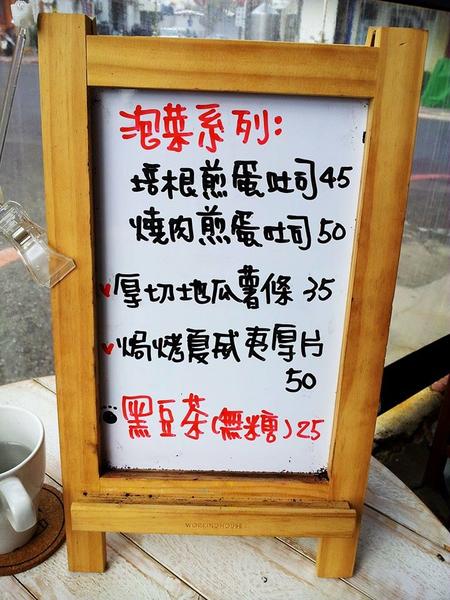 泡菜系列:
培根煎蛋吐司45
燒肉煎蛋吐司50
厚切地瓜薯條 35
焗烤夏威夷厚片
50
黑豆茶(無糖)25
WORKINGHOUSE